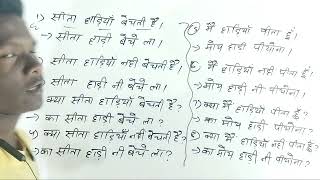 1) सीता हाड़ियाँ बेचती है।
→ सीता हाड़ी बेचे ला।
सीता हाड़ियाँ नहीं बेचती है।
सीता हाड़ी नी बेचे ला।
क्या सीता हाड़ियाँ बेचती है?
→ का सीता हाड़ी बेचे ला?
क्या सीता हाड़ियाँ नहीं बेचती है?
→ का सीता हाड़ी नी बेचे ला?
मैं हाड़ियाँ पीता हूँ।
→ मोय हाड़ी पीयोना।
6) मैं हाड़ियाँ नहीं पीता हूँ।
→ मोय हाड़ी नी पीयोना।
क्या मैं हाड़ियाँ पीता हूँ?
→ का मोय हाड़ी पीयोना?
8) क्या मैं हाड़ियाँ नहीं पीता हूँ?
→ का मोय हाड़ी नी पीयोना?